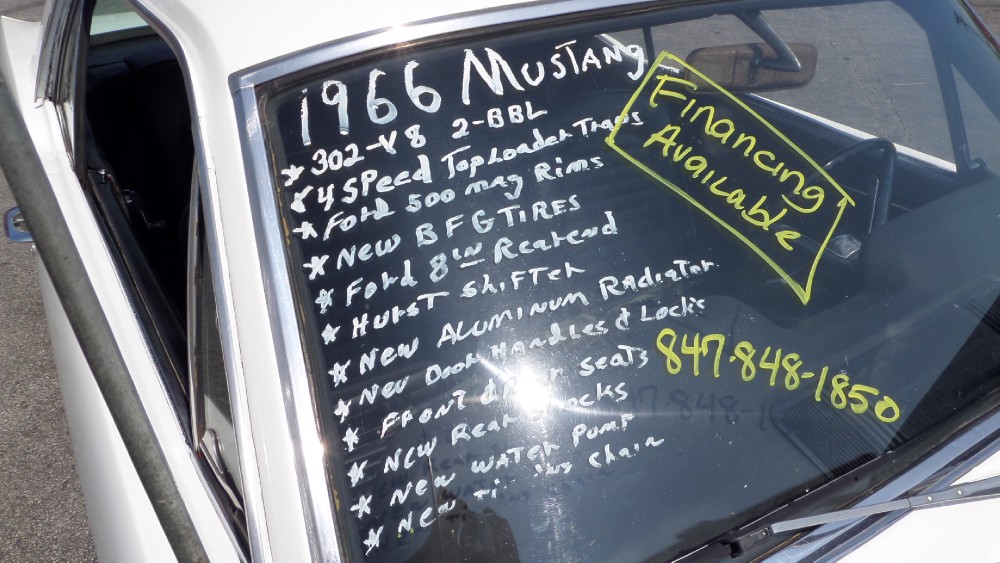 1966 MUSTANG
* 302-V8 2-BBL
* 4 SPeed TopLoader Trans
* Ford 500 mag Rims
* New BFG TIRES
* Ford 8 IN Rearend
* HURST SHiFTer
* New ALUMINUM Radiator
* New Door Handles & Locks
* FRONT & seats
* New Rear
* New WATER PUMP
* New chain
Financing
Available
847-848-1850